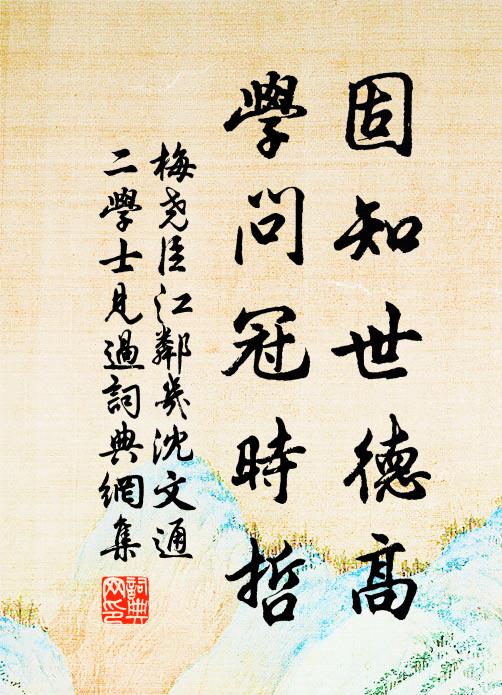 固知世德高
學問冠時哲
梅堯臣江鄰幾沈文通
二學士見過詞典網集
詞典網印